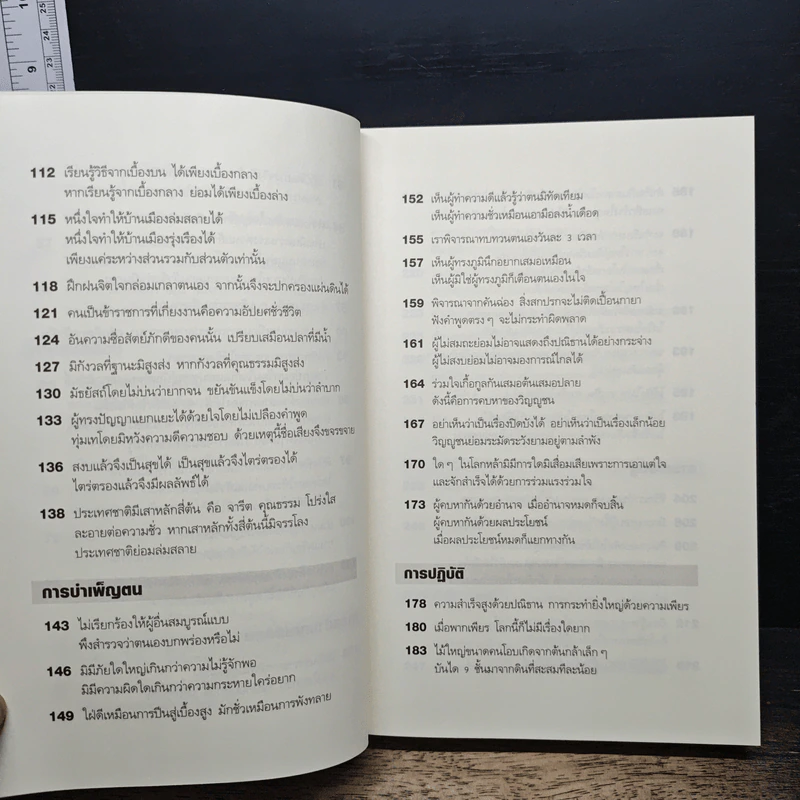 112 เรียนรู้วิธีจากเบื้องบน ได้เพียงเบื้องกลาง
หากเรียนรู้จากเบื้องกลาง ย่อมได้เพียงเบื้องล่าง
115 หนึ่งใจทำให้บ้านเมืองล่มสลายได้
หนึ่งใจทำให้บ้านเมืองรุ่งเรืองได้
เพียงแค่ระหว่างส่วนรวมกับส่วนตัวเท่านั้น
118 ฝึกฝนจิตใจกล่อมเกลาตนเอง จากนั้นจึงจะปกครองแผ่นดินได้
121 คนเป็นข้าราชการที่เกี่ยงงานคือความอัปยศชั่วชีวิต
124 อันความซื่อสัตย์ภักดีของคนนั้น เปรียบเสมือนปลาที่มีน้ำ
127 มิกังวลที่ฐานะมิสูงส่ง หากกังวลที่คุณธรรมมิสูงส่ง
130 มัธยัสถ์โดยไม่บ่นว่ายากจน ขยันขันแข็งโดยไม่บ่นว่าลำบาก
133 ผู้ทรงปัญญาแยกแยะได้ด้วยใจโดยไม่เปลืองคำพูด
ทุ่มเทโดยมิหวังความดีความชอบ ด้วยเหตุนี้ชื่อเสียงจึงขจรขจาย
136 สงบแล้วจึงเป็นสุขได้ เป็นสุขแล้วจึงไตร่ตรองได้
ไตร่ตรองแล้วจึงมีผลลัพธ์ได้
138 ประเทศชาติมีเสาหลักสี่ต้น คือ จารีต คุณธรรม โปร่งใส
ละอายต่อความชั่ว หากเสาหลักทั้งสี่ต้นนี้มิจรรโลง
ประเทศชาติย่อมล่มสลาย
การบำเพ็ญตน
143 ไม่เรียกร้องให้ผู้อื่นสมบูรณ์แบบ
พึงสำรวจว่าตนเองบกพร่องหรือไม่
146 มิมีภัยใดใหญ่เกินกว่าความไม่รู้จักพอ
มิมีความผิดใดเกินกว่าความกระหายใคร่อยาก
149 ใฝ่ดีเหมือนการปีนสู่เบื้องสูง มักชั่วเหมือนการพังทลาย
152 เห็นผู้ทำความดีแล้วรู้ว่าตนมิทัดเทียม
เห็นผู้ทำความชั่วเหมือนเอามือลงน้ำเดือด
155 เราพิจารณาทบทวนตนเองวันละ 3 เวลา
157 เห็นผู้ทรงภูมินึกอยากเสมอเหมือน
เห็นผู้มิใช่ผู้ทรงภูมิก็เตือนตนเองในใจ
159 พิจารณาจากคันฉ่อง สิ่งสกปรกจะไม่ติดเปื้อนกายา
ฟังคำพูดตรงๆ จะไม่กระทำผิดพลาด
161 ผู้ไม่สมถะย่อมไม่อาจแสดงถึงปณิธานได้อย่างกระจ่าง
ผู้ไม่สงบย่อมไม่อาจมองการณ์ไกลได้
164 ร่วมใจเกื้อกูลกันเสมอต้นเสมอปลาย
ดังนี้คือการคบหาของวิญญูชน
167 อย่าเห็นว่าเป็นเรื่องปิดบังได้ อย่าเห็นว่าเป็นเรื่องเล็กน้อย
วิญญูชนย่อมระมัดระวังยามอยู่ตามลำพัง
170 ใดๆ ในโลกหล้ามิมีการใดมิเสื่อมเสียเพราะการเอาแต่ใจ
และจักสำเร็จได้ด้วยการร่วมแรงร่วมใจ
173 ผู้คบหากันด้วยอำนาจ เมื่ออำนาจหมดก็จบสิ้น
ผู้คบหากันด้วยผลประโยชน์
เมื่อผลประโยชน์หมดก็แยกทางกัน
การปฏิบัติ
178 ความสำเร็จสูงด้วยปณิธาน การกระทำยิ่งใหญ่ด้วยความเพียร
180 เมื่อพากเพียร โลกนี้ก็ไม่มีเรื่องใดยาก
183 ไม้ใหญ่ขนาดคนโอบเกิดจากต้นกล้าเล็กๆ
บันได 9 ชั้นมาจากดินที่สะสมทีละน้อย